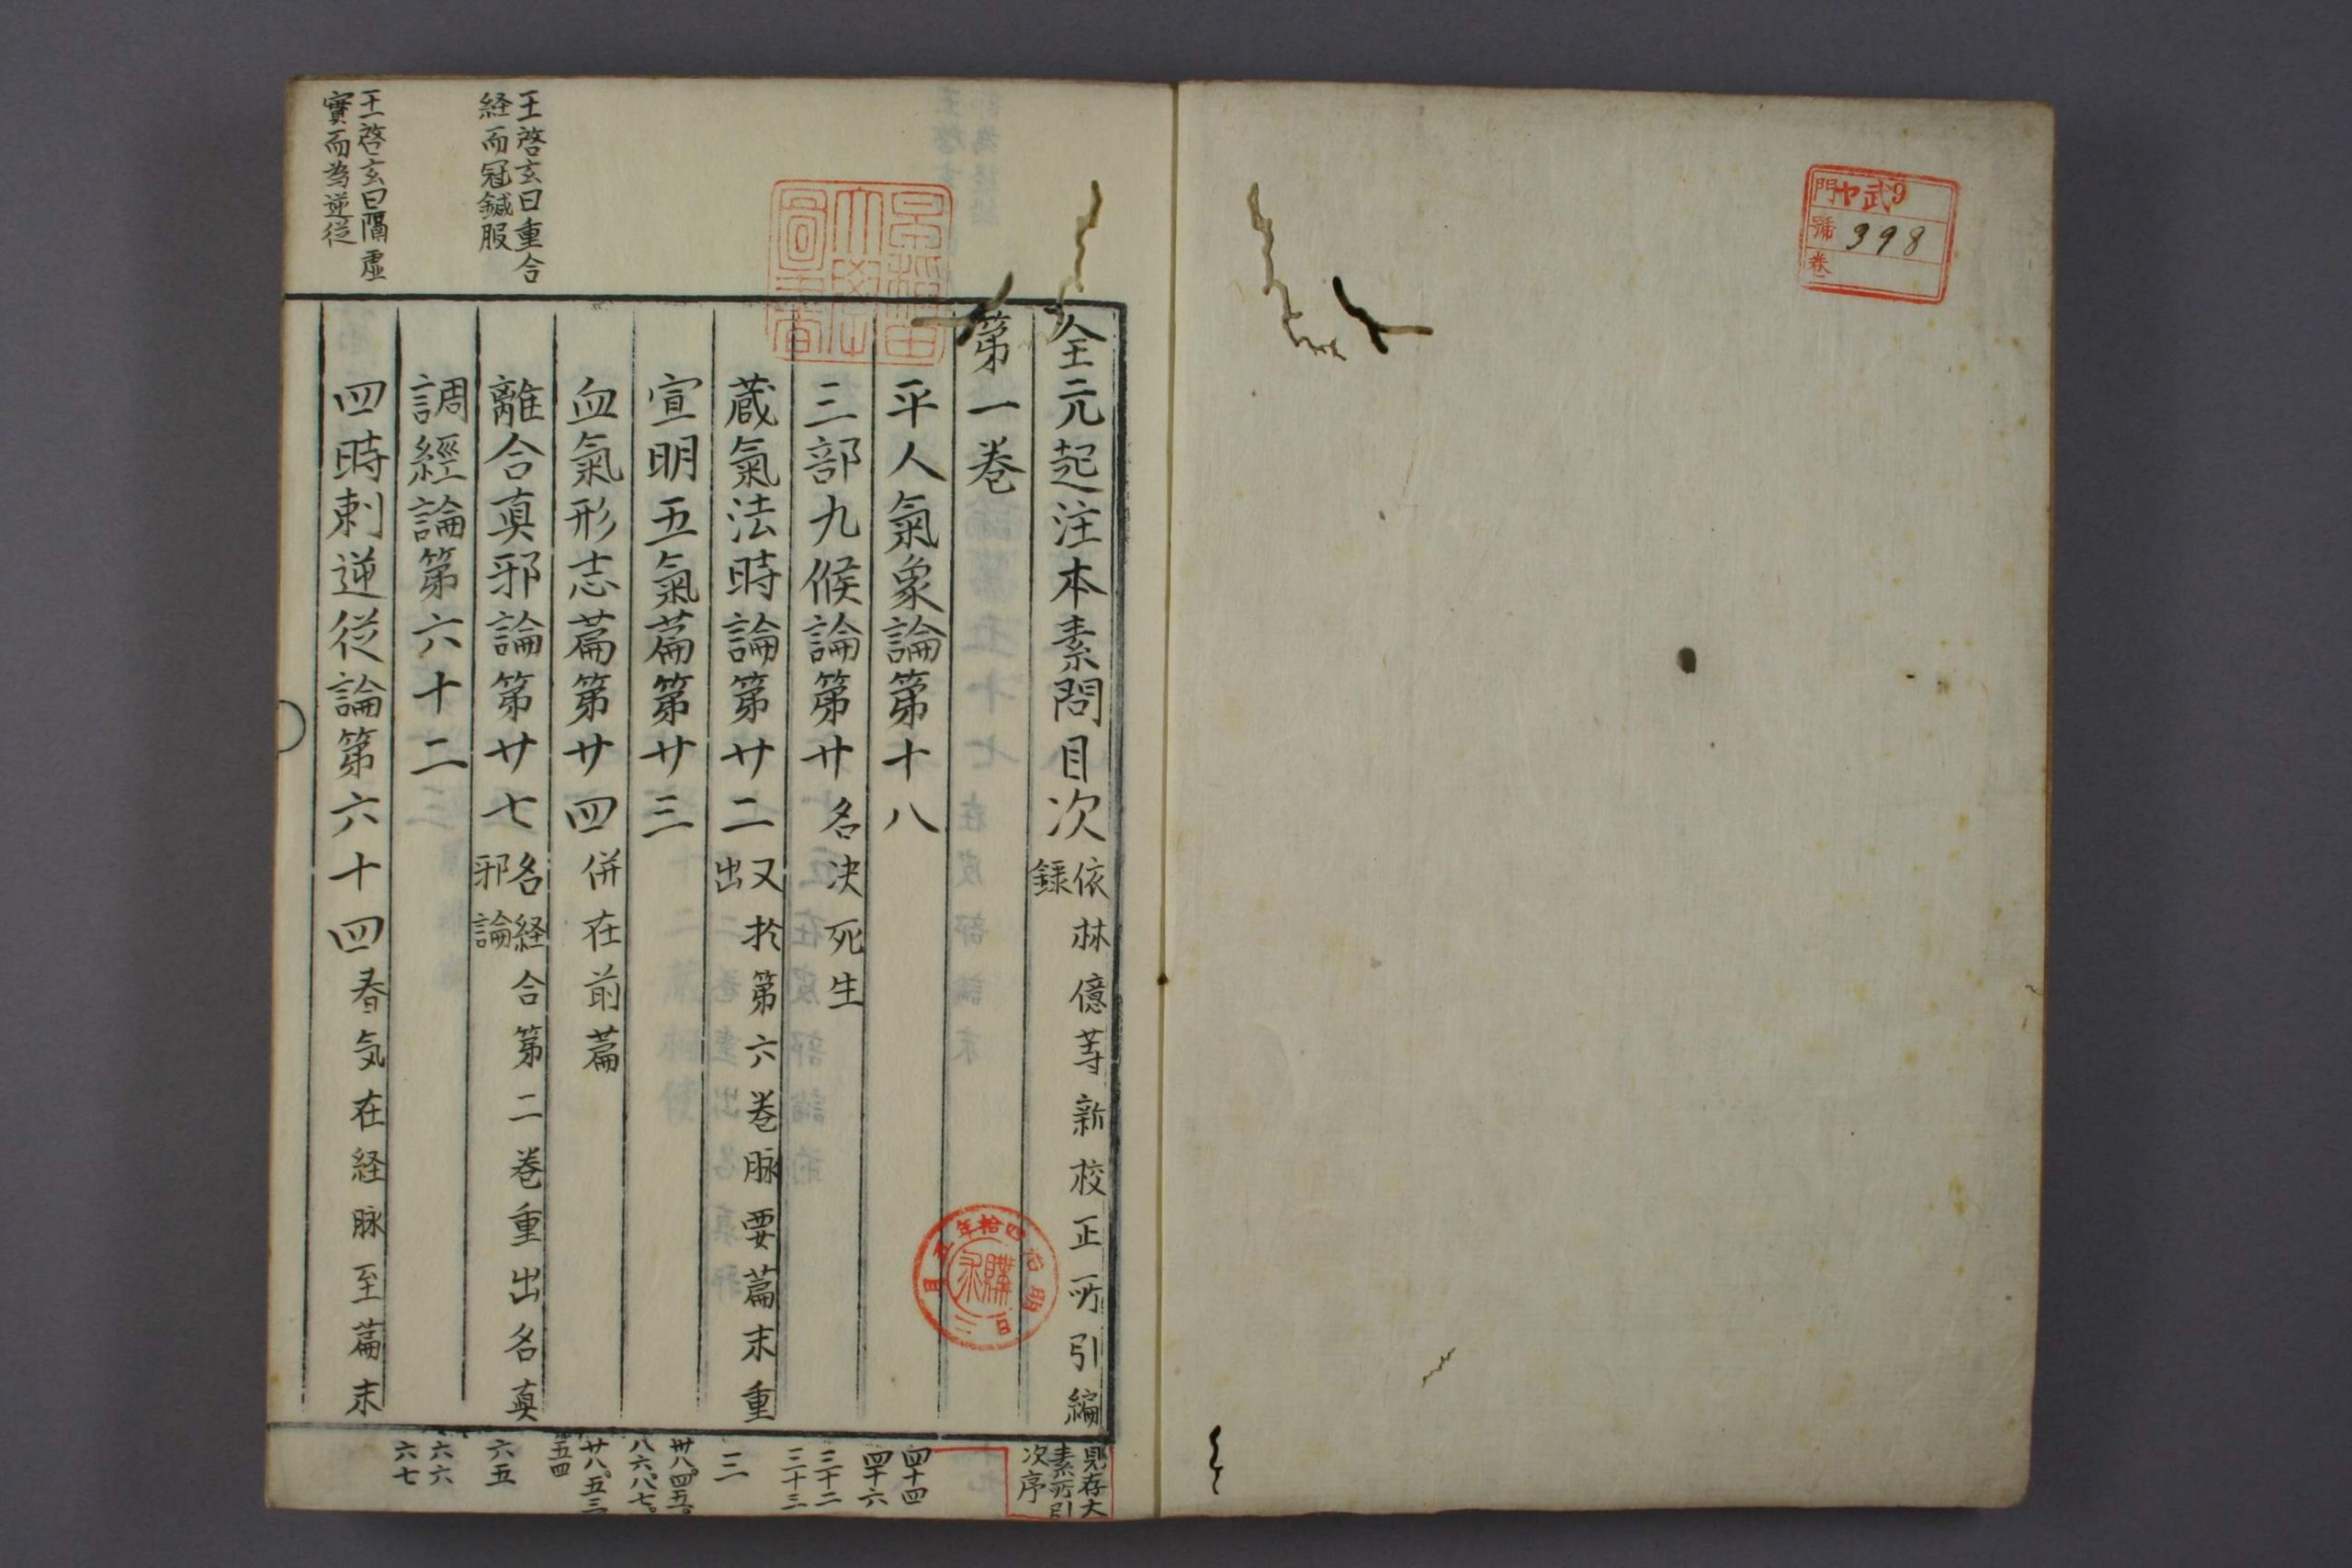 門 ヤ武9
號 398
卷
全元起注本素問目次 依林億等新校正所引編
錄
第一卷
平人氣象論第十八
三部九候論第廿 名決死生
藏氣法時論第廿二 又於第六卷脉要篇末重
出
宣明五氣篇第廿三
血氣形志篇第廿四 併在前篇
離合真邪論第廿七 名経合第二卷重出名真
邪論
調經論第六十二
四時刺逆從論第六十四 春気在経脉至篇末
王啓玄曰重合
経而冠鍼服
王啓玄曰隔虛
實而為逆從
早稲田
大學
圖書
明治四拾年五月三日
購求
見存大
素所引
次序
四十四
四十六
三十二
三十三
三
卅八。四五。
八六。八七。
廿八。五三
五四
六五
六六
六七